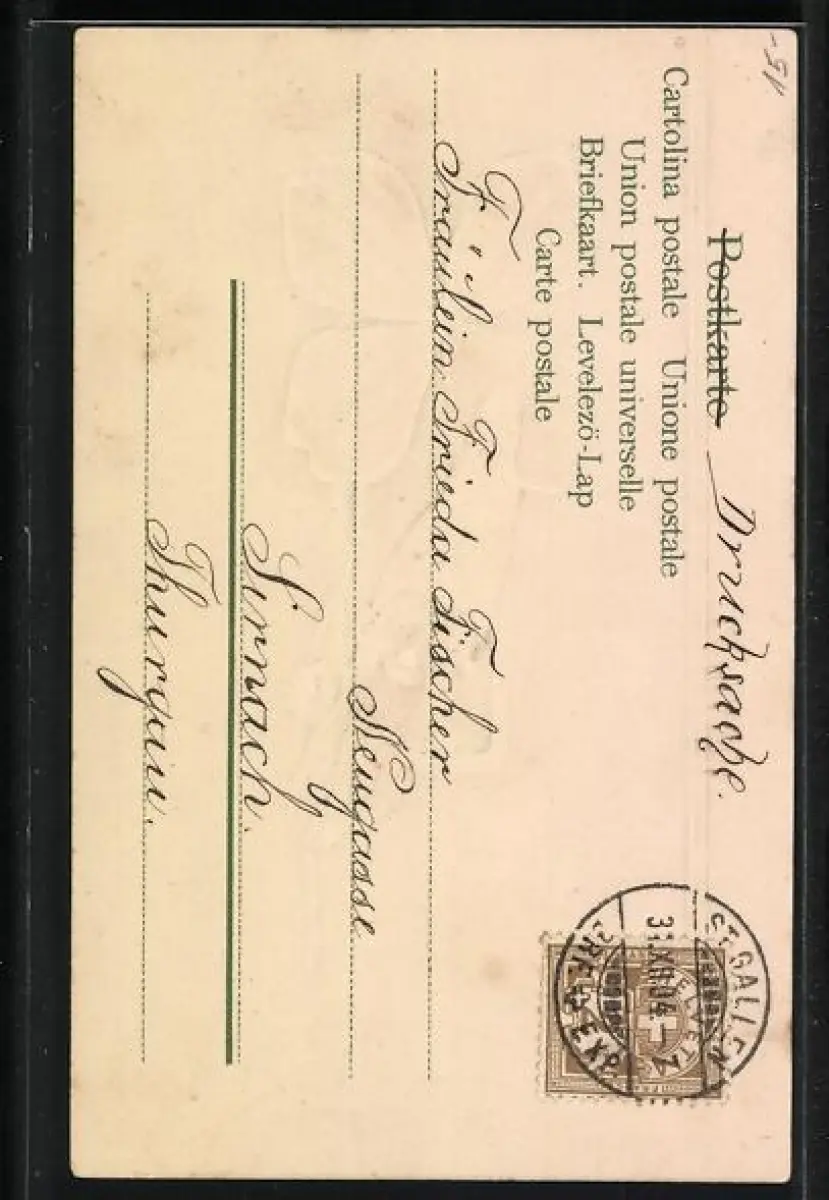 15.-
Postkarte Drucksache.
Cartolina postale Unione postale
Union postale universelle
Briefkaart. Levelezö-Lap
Carte postale
Fräulein Frieda Fischer
Neugasse
Sirnach.
Thurgau.
ST. GALLEN
31.XII.04.-7
BRF. EXP.
HELVETIA